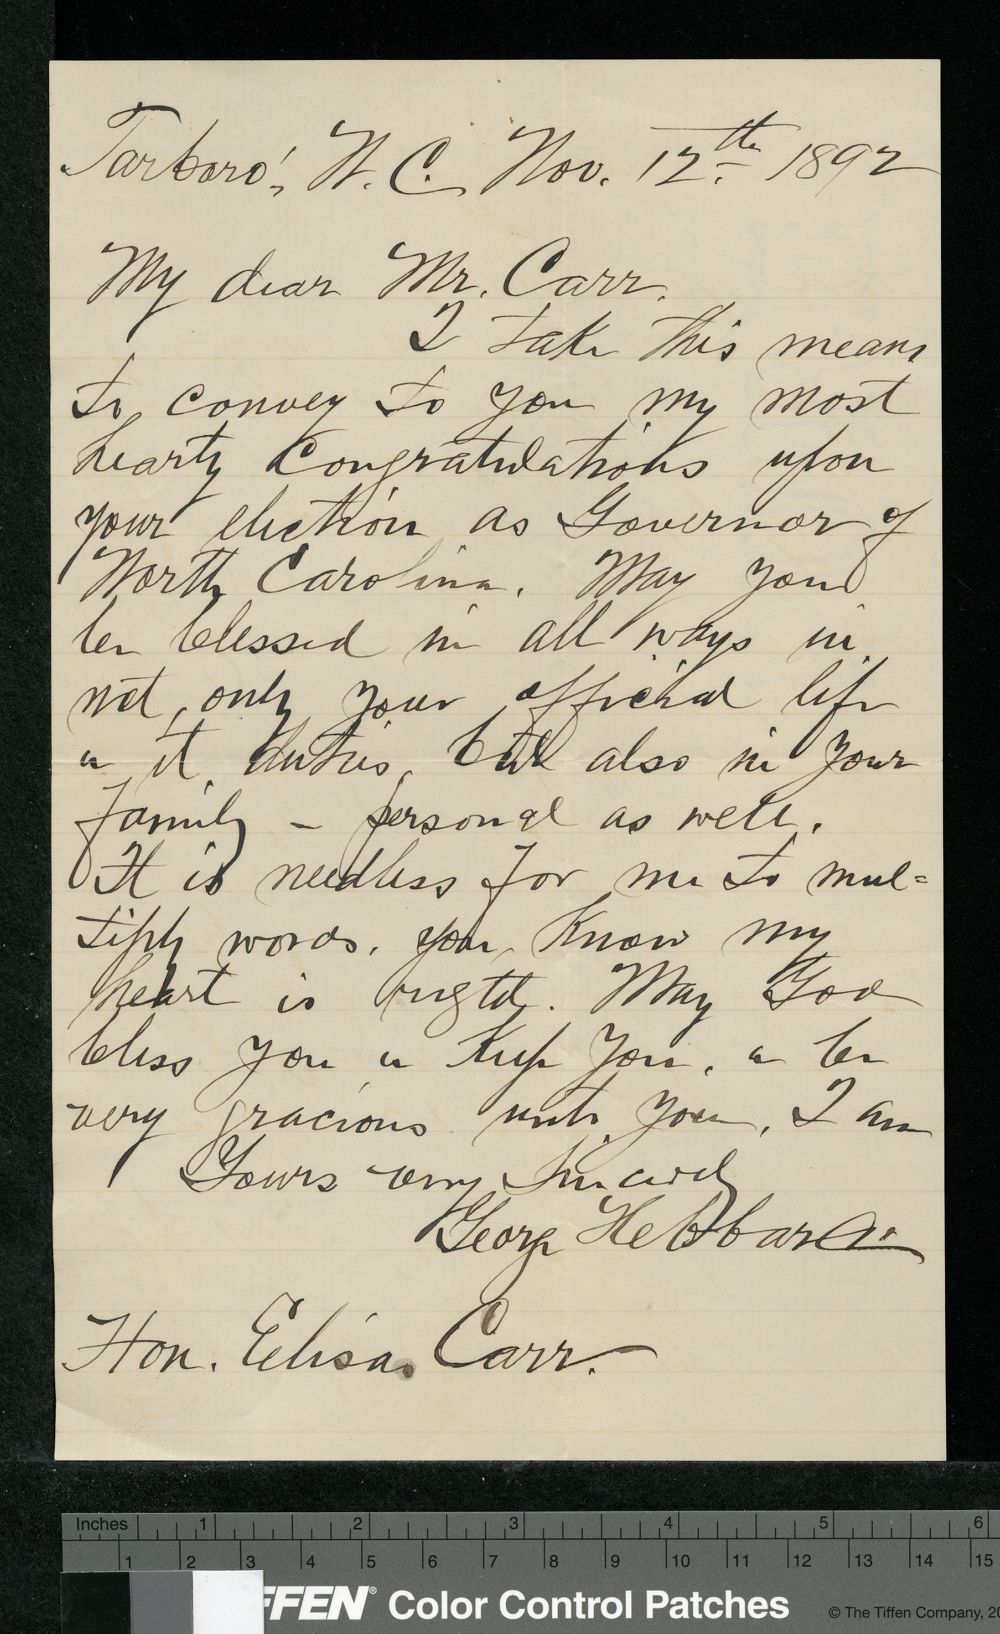 Tarboro', N. C. Nov. 12th 1892
My dear Mr. Carr.
I take this means
to convey to you my most
hearty congratulations upon
your election as Governor of
North Carolina. May you
be blessed in all ways in
not only your official life
& it duties, but also in your
family - personal as well.
It is needless for me to mul=
tiply words. you know my
heart is right. May God
bless you & keep you, & be
very gracious unto you, I am
Yours very sincerely
George
Hon. Elias Carr.
Inches 1 2 3 4 5 6
1 2 3 4 5 6 7 8 9 10 11 12 13 14 15
FFEN® Color Control Patches © The Tiffen Company, 20